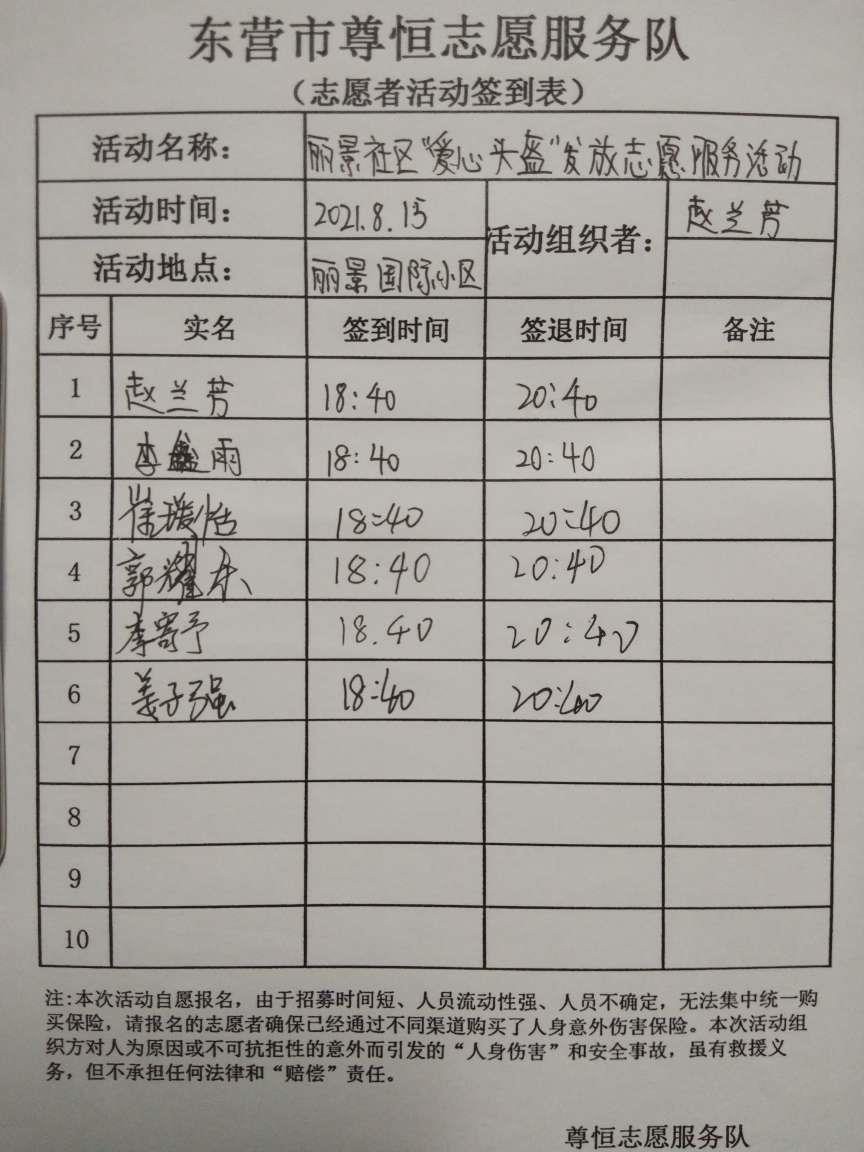 东营市尊恒志愿服务队
（志愿者活动签到表）
活动名称： 丽景社区“爱心头盔”发放志愿服务活动
活动时间： 2021.8.15 活动组织者： 赵兰芳
活动地点： 丽景国际小区
序号 实名 签到时间 签退时间 备注
1 赵兰芳 18:40 20:40
2 李鑫雨 18:40 20:40
3 崔瑷恬 18:40 20:40
4 郭耀东 18:40 20:40
5 李寄予 18.40 20:40
6 姜子强 18:40 20:40
7
8
9
10
注:本次活动自愿报名，由于招募时间短、人员流动性强、人员不确定，无法集中统一购
买保险，请报名的志愿者确保已经通过不同渠道购买了人身意外伤害保险。本次活动组
织方对人为原因或不可抗拒性的意外而引发的“人身伤害”和安全事故，虽有救援义
务，但不承担任何法律和“赔偿”责任。
尊恒志愿服务队